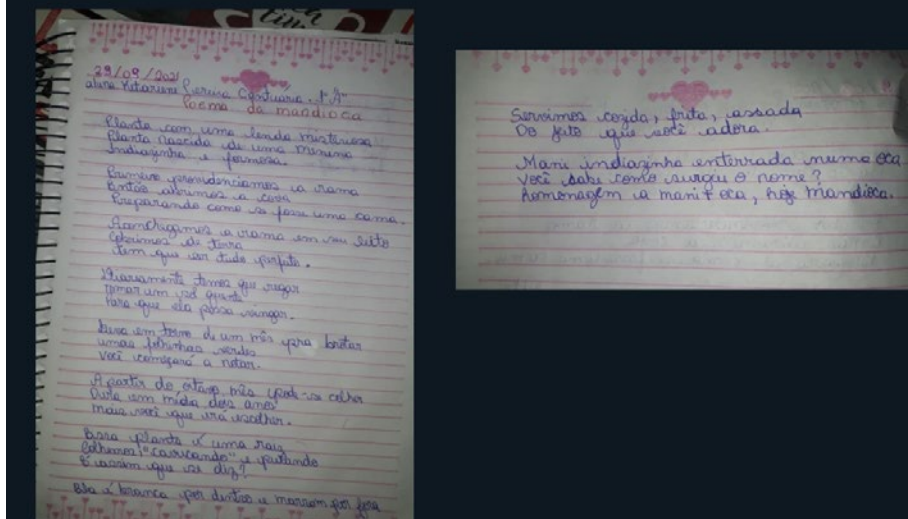 29/09/2021
aluna Pereira 1° "A"
Poema da mandioca
Planta com uma lenda misteriosa
Planta nascida de uma menina
Indiazinha e formosa.
Primeiro providenciamos a rama
Então abrimos a cova
Preparando como se fosse uma cama.
Aconchegamos a rama em seu leito
Cobrimos de terra
Tem que ser tudo perfeito.
Diariamente temos que regar
tomar um sol quente
Para que ela possa vingar.
Leva em torno de um mês pra brotar
umas folhinhas verdes
Você começará a notar.
A partir do oitavo mês pode-se colher
Dura em média dois anos
mais você que irá escolher.
Essa planta é uma raiz
Colhemos "cavucando" e puxando
É assim que se diz?
Ela é branca por dentro e marrom por fora
Servimos cozida, frita, assada
Do jeito que você adora.
Mani indiazinha enterrada numa oca
Você sabe como surgiu o nome?
homenagem a mani + oca, hoje mandioca.